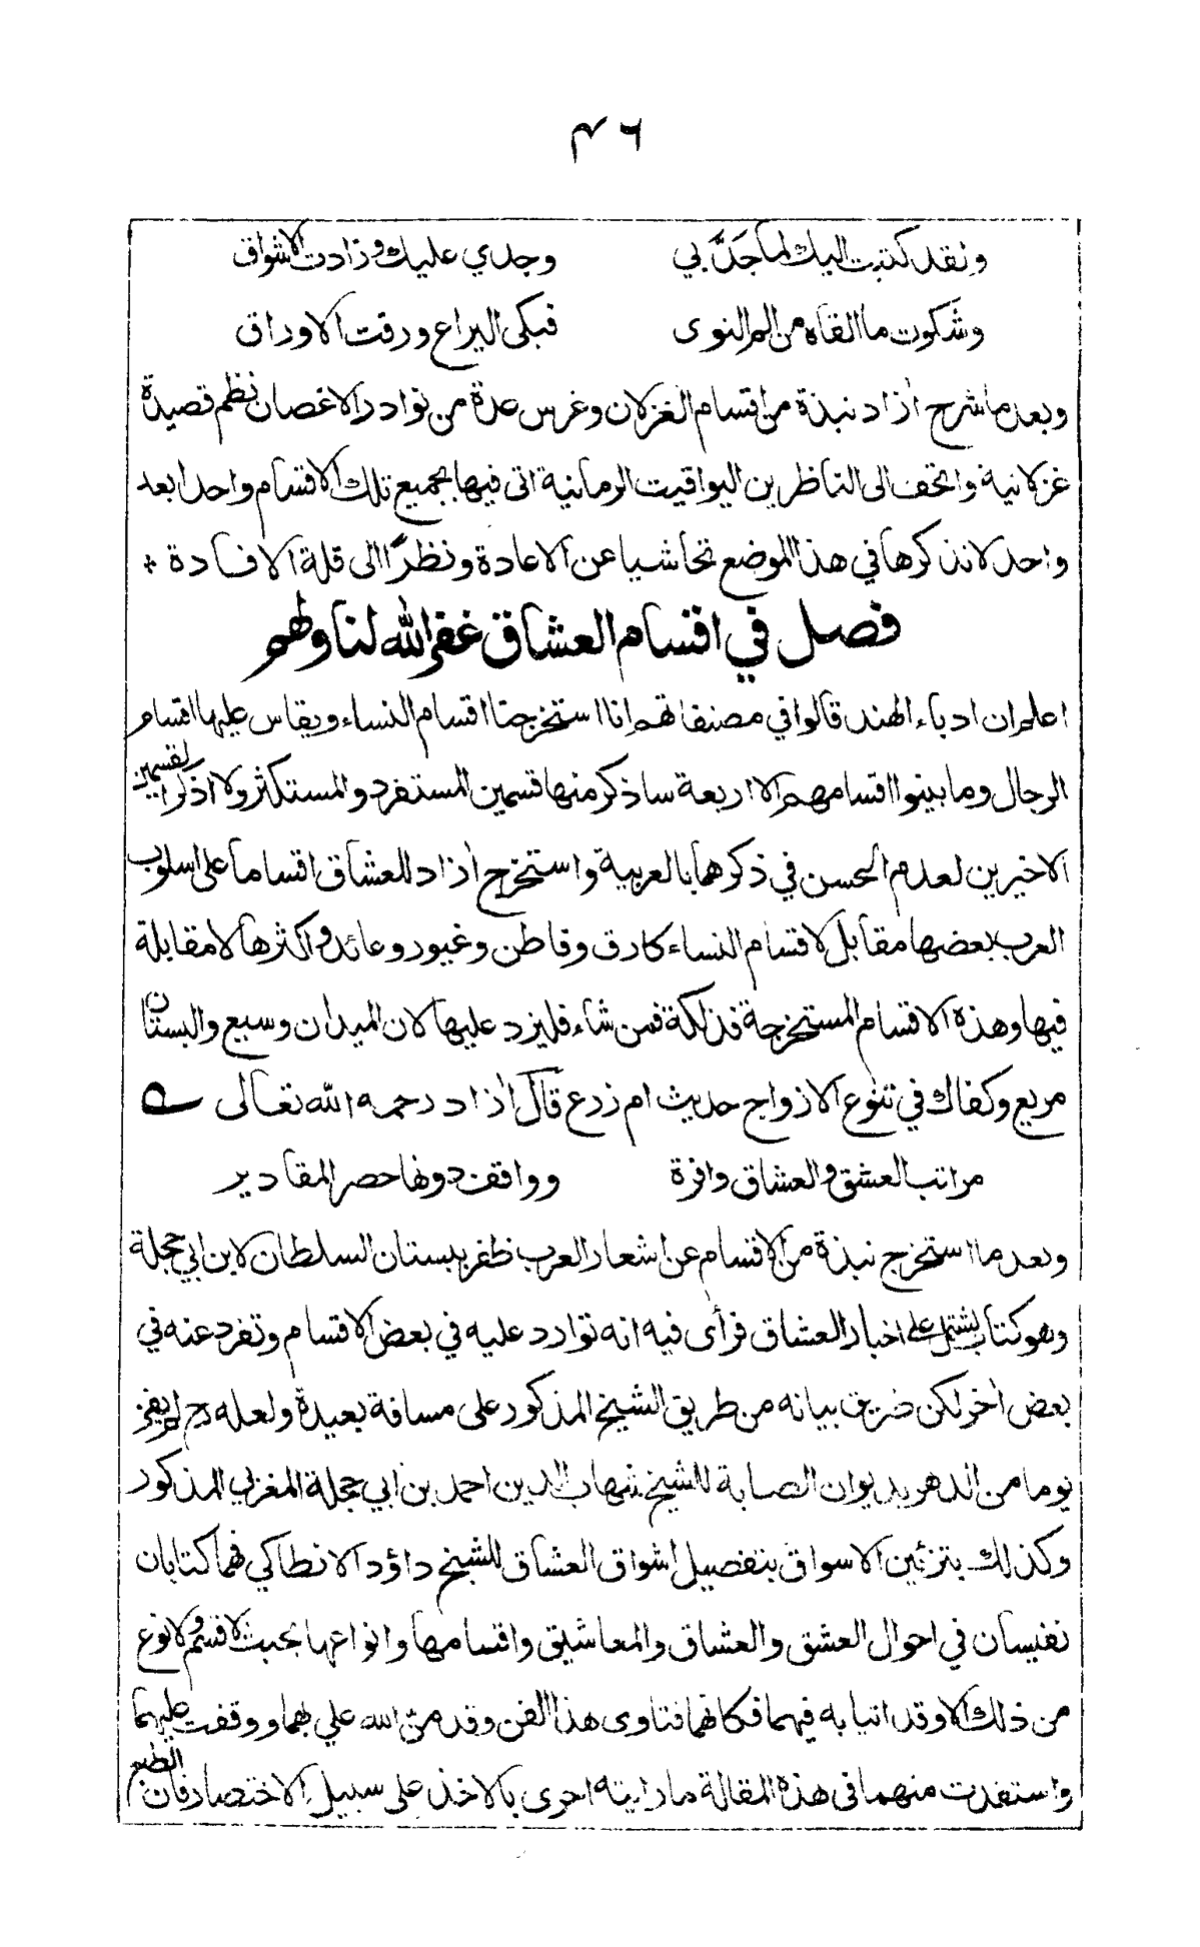 ٤٦
ولقد كتبت اليك لما جَدَّ بي وجدي عليك وزادت الاشواق
وشكوت ما القاه من الم النوى فبكى اليراع ورقت الاوراق
وبعد ما شرح اٰزاد نبذة من اقسام الغزلان وغرس عدة من نوادر الاغصان نظم قصيدة
غزلانية واتحف الى الناظرين اليواقيت الرمانية اتى فيها بجميع تلك الاقسام واحدا بعد
واحد لانذكرها في هذا الموضع تحاشيا عن الاعادة ونظرًا الى قلة الافادة *
فصل في اقسام العشاق غفر الله لنا ولهم
اعلم ان ادباء الهند قالوا في مصنفاتهم انا استخرجنا اقسام النساء ويقاس عليها اقسام
الرجال وما بينوا اقسامهم الا اربعة ساذكر منها قسمين المستفرد والمستكثر ولا اذكر القسمين
الاخيرين لعدم الحسن في ذكرهما بالعربية واستخرج اٰزاد للعشاق اقساما على اسلوب
العرب بعضها مقابل لاقسام النساء كارق وقاطن وغيور وعائد واكثرها لا مقابلة
فيها وهذه الاقسام المستخرجة فذلكة فمن شاء فليزد عليها لان الميدان وسيع والبستان
مريع وكفاك في تنوع الازواج حديث ام زرع قال اٰزاد رحمه الله تعالى
مراتب العشق والعشاق وافرة وواقف دونها حصر المقادير
وبعد ما استخرج نبذة من الاقسام عن اشعار العرب ظفر ببستان السلطان لابن ابي حجلة
وهو كتاب يشتمل على اخبار العشاق فرأى فيه انه توارد عليه في بعض الاقسام وتفرد عنه في
بعض اٰخر لكن طريق بيانه من طريق الشيخ المذكور على مسافة بعيدة ولعله رح لم يفز
يوما من الدهر بديوان الصبابة للشيخ شهاب الدين احمد بن ابي حجلة المغربي المذكور
وكذلك بتزئين الاسواق بتفصيل اشواق العشاق للشيخ داؤد الانطاكي فهما كتابان
نفيسان في احوال العشق والعشاق والمعاشيق واقسامها وانواعها بحيث لا قسم ولا نوع
من ذلك الا وقد اتيا به فيهما فكانهما فتاوى هذا الفن وقد من الله علي بهما ووقفت عليهما
واستفدت منهما في هذه المقالة ما رايته احرى بالاخذ على سبيل الاختصار فان الطبع